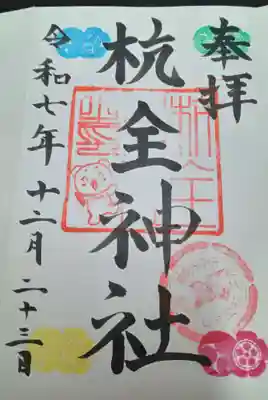 奉拝
杭全神社
令和七年十二月二十三日